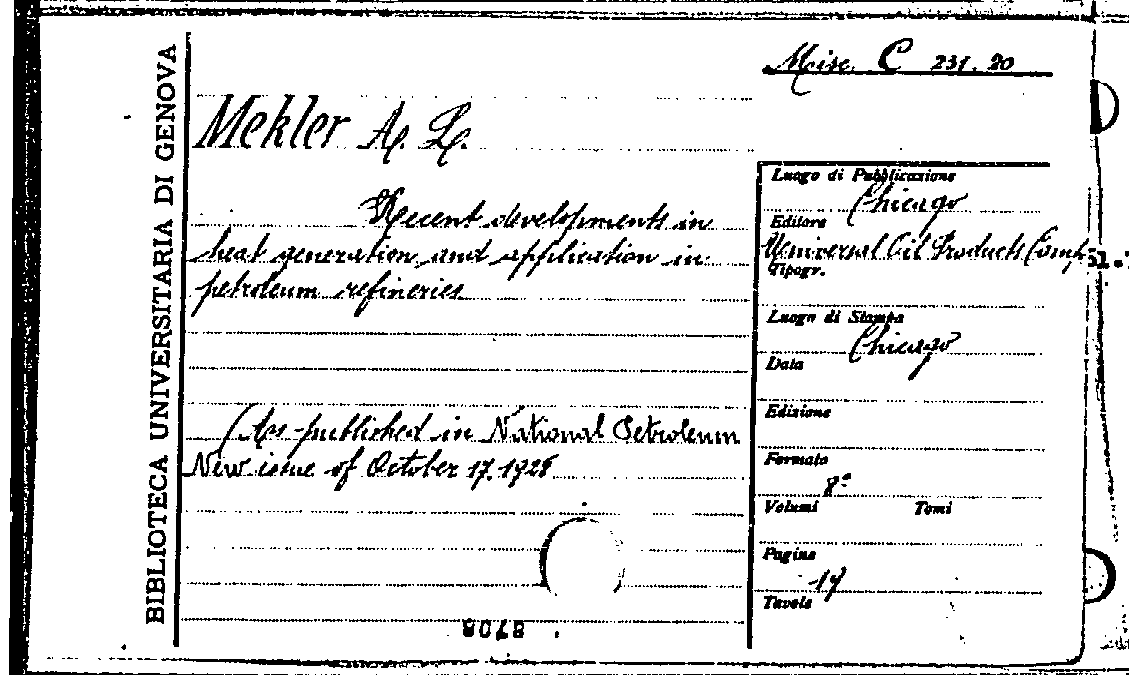 BIBLIOTECA UNIVERSITARIA DI GENOVA
Misc. C 231.20
Mekler A. L.
Recent developments in
heat generation and application in
petroleum refineries
(As published in National Petroleum
New issue of October 17, 1928
Luogo di Pubblicazione
Chicago
Editore
Universal Oil Products Comp.
Tipogr.
Luogo di Stampa
Chicago
Data
Edizione
Formato
8º
Volumi Tomi
Pagine
Tavole